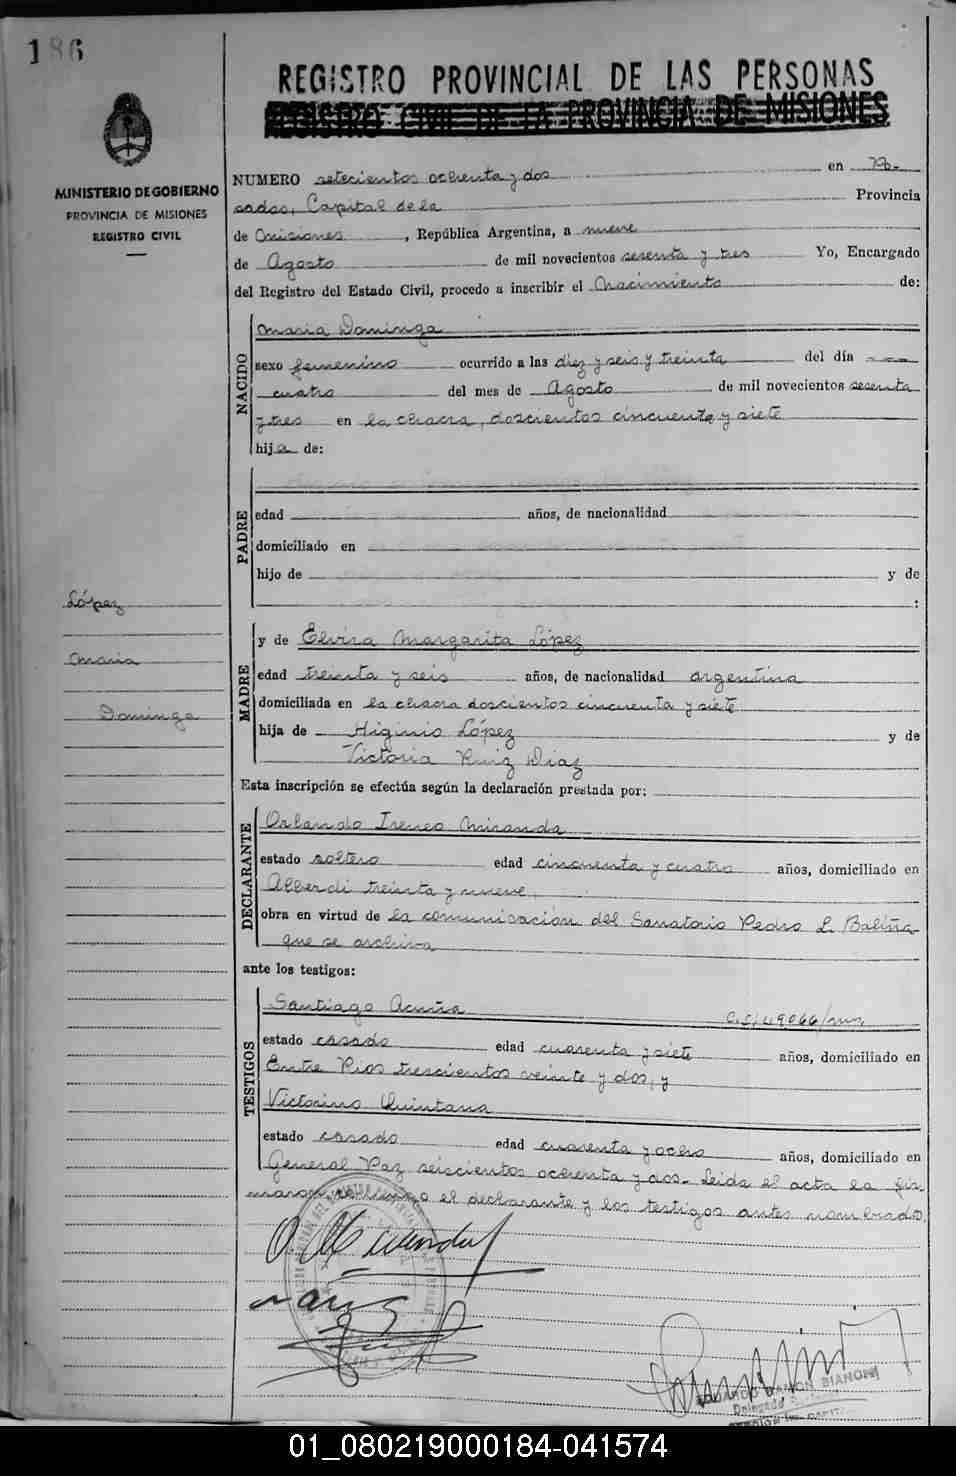 186
REGISTRO PROVINCIAL DE LAS PERSONAS
REGISTRO CIVIL DE LA PROVINCIA DE MISIONES
MINISTERIO DE GOBIERNO
PROVINCIA DE MISIONES
REGISTRO CIVIL
NUMERO setecientos ochenta y dos en Po-
sadas, Capital de la Provincia
de Misiones, República Argentina, a nueve
de Agosto de mil novecientos sesenta y tres Yo, Encargado
del Registro del Estado Civil, procedo a inscribir el Nacimiento de:
NACIDO
Maria Dominga
sexo femenino ocurrido a las diez y seis y treinta del día
cuatro del mes de Agosto de mil novecientos sesenta
y tres en la chacra, doscientos cincuenta y siete
hija de:
PADRE
edad años, de nacionalidad
domiciliado en
hijo de y de
:
López
Maria
Dominga
MADRE
y de Elvira Margarita López
edad treinta y seis años, de nacionalidad argentina
domiciliada en la chacra doscientos cincuenta y siete
hija de Higinio López y de
Victoria Ruiz Diaz
Esta inscripción se efectúa según la declaración prestada por:
DECLARANTE
Orlando Ireneo Miranda
estado soltero edad cincuenta y cuatro años, domiciliado en
Alberdi treinta y nueve,
obra en virtud de la comunicación del Sanatorio Pedro L. Baliña
que se archiva
ante los testigos:
TESTIGOS
Santiago Acuña
estado casado edad cuarenta y siete años, domiciliado en
Entre Rios trescientos veinte y dos, y
Victorino Quintana
estado casado edad cuarenta y ocho años, domiciliado en
General Paz seiscientos ochenta y dos. Leida el acta la fir-
maron conmigo el declarante y los testigos antes nombrados.
O. Miranda
EDUARDO RAMON BIANCHI
Delegado
01_080219000184-041574